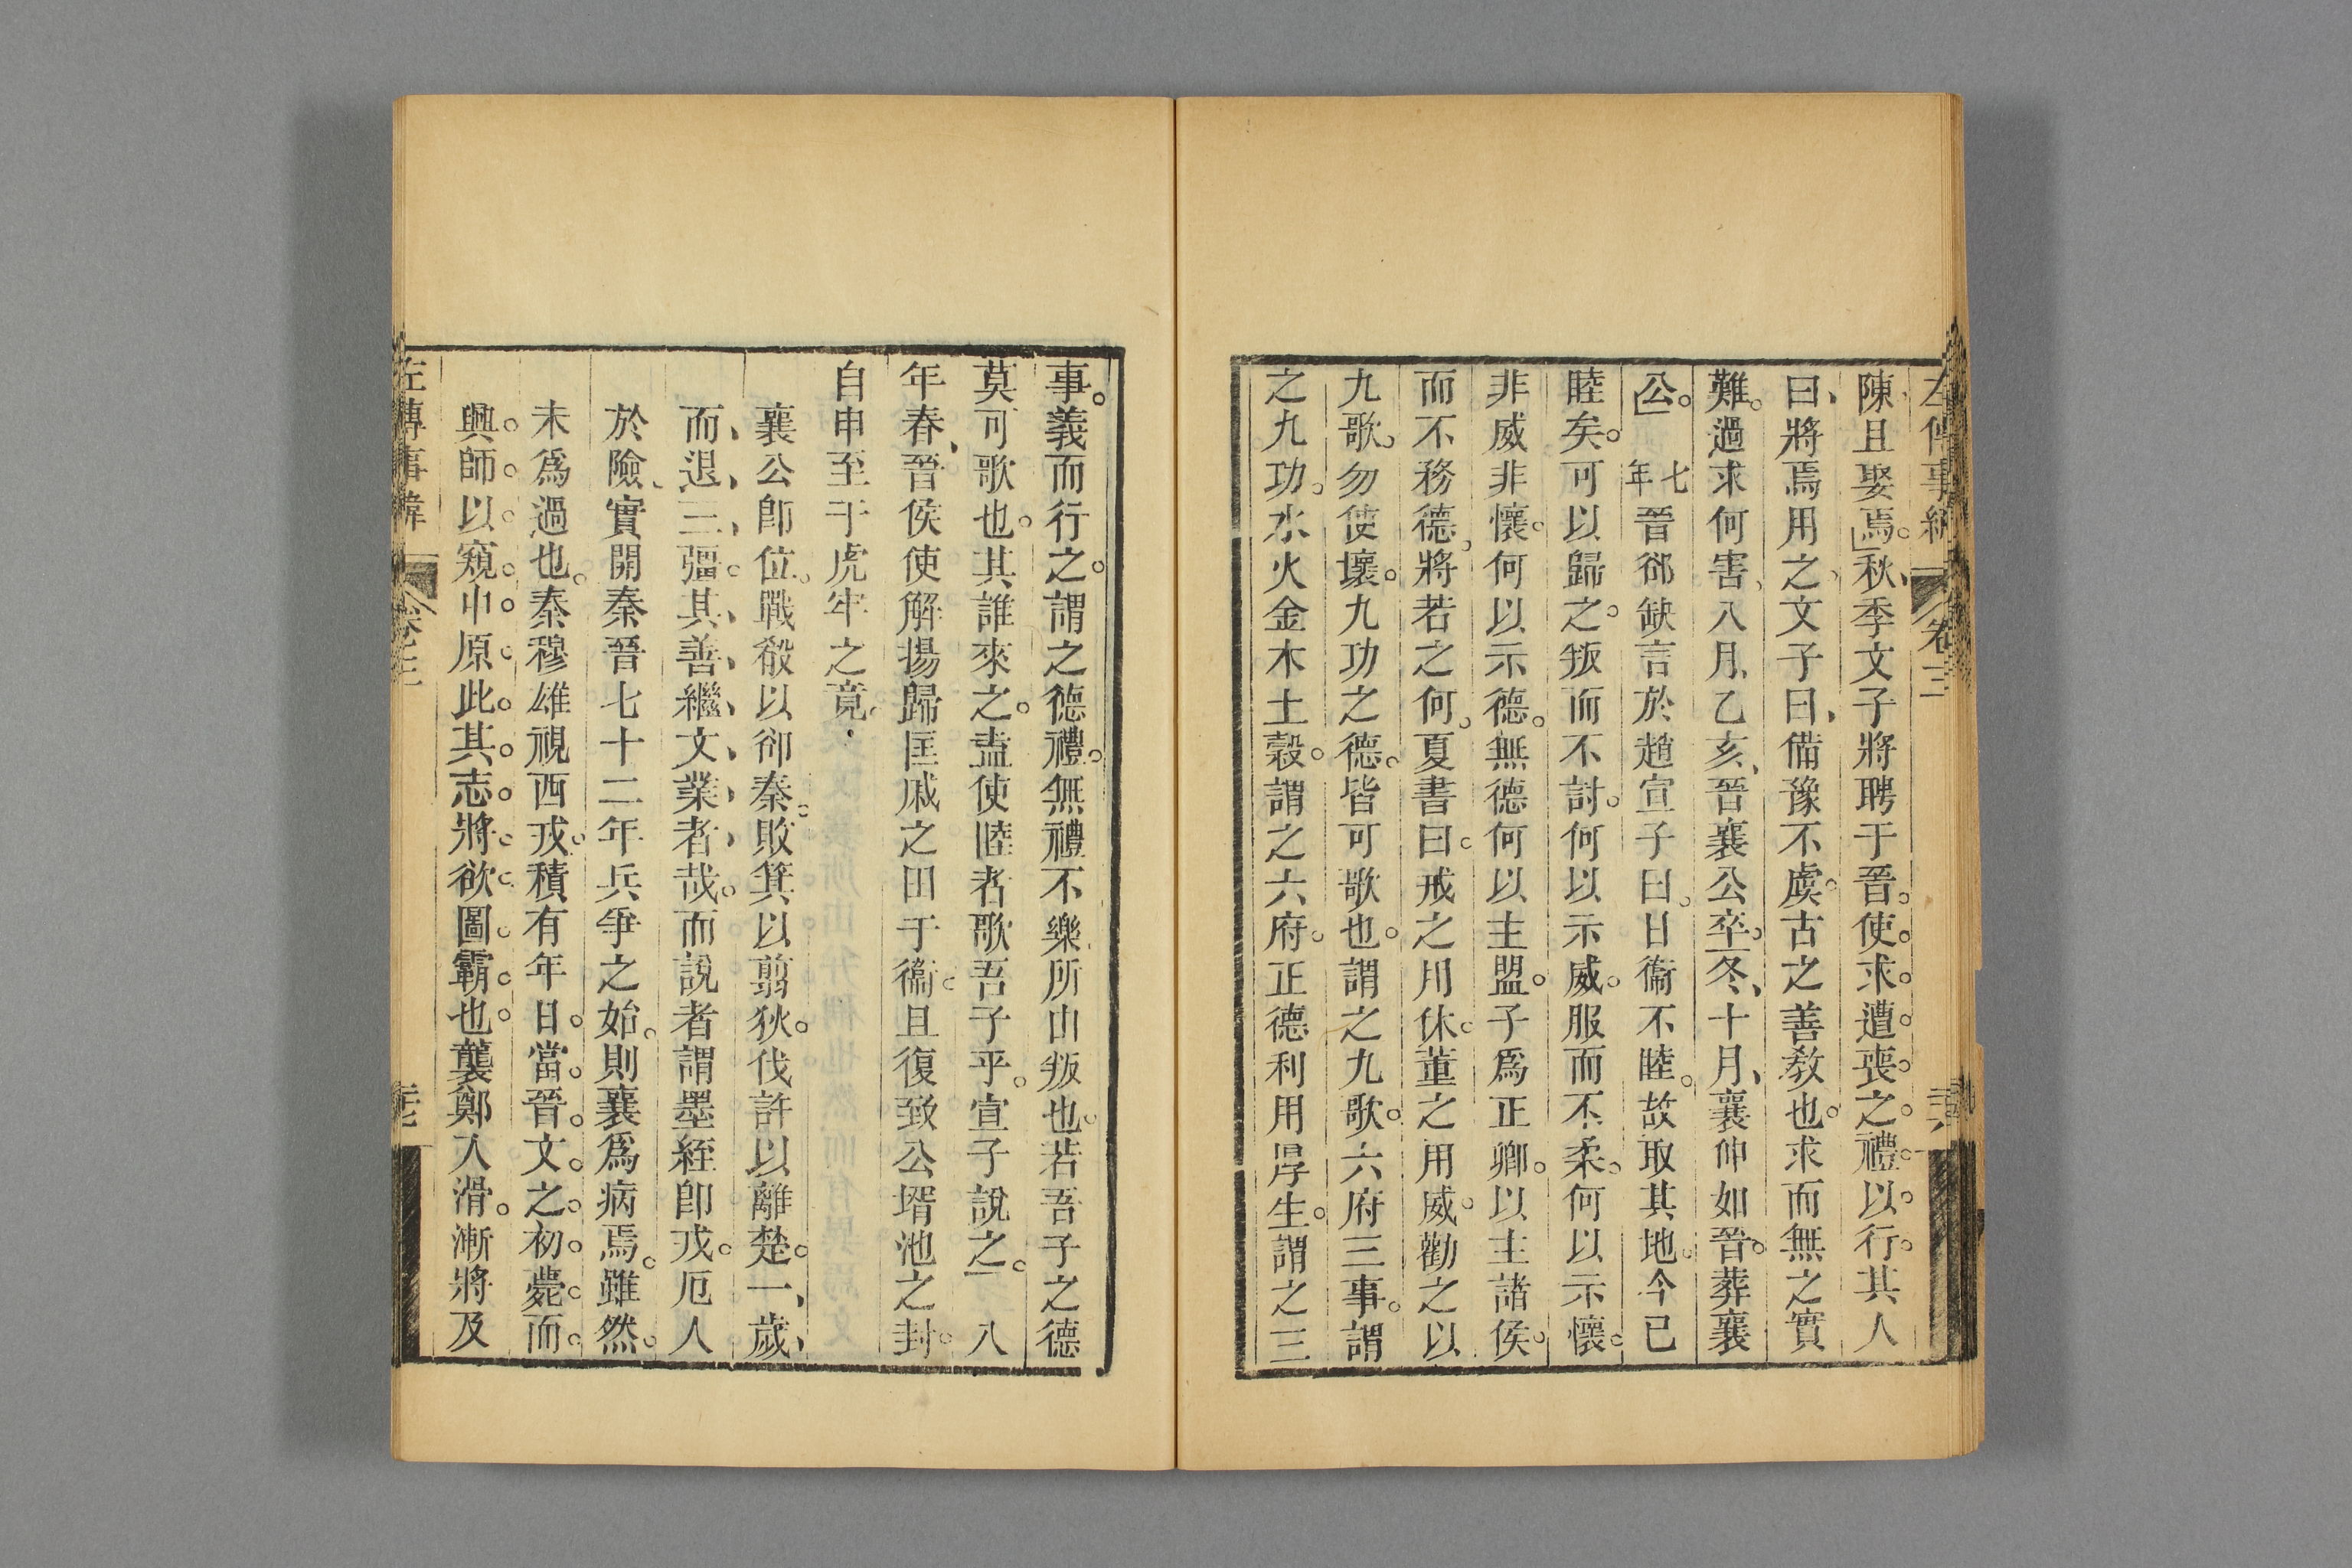 左傳事緯 卷三
陳且娶焉秋季文子將聘于晉使求遭喪之禮以行其人
曰將焉用之文子曰備豫不虞古之善教也求而無之實
難過求何害八月乙亥晉襄公卒冬十月襄仲如晉葬襄
公 七年 晉郤缺言於趙宣子曰日衞不睦故取其地今已
睦矣可以歸之叛而不討何以示威服而不柔何以示懷
非威非懷何以示德無德何以主盟子爲正卿以主諸侯
而不務德將若之何夏書曰戒之用休董之用威勸之以
九歌勿使壞九功之德皆可歌也謂之九歌六府三事謂
之九功水火金木土穀謂之六府正德利用厚生謂之三
事義而行之謂之德禮無禮不樂所由叛也若吾子之德
莫可歌也其誰來之盍使睦者歌吾子乎宣子說之 八
年春晉侯使解揚歸匡戚之田于衞且復致公壻池之封
自申至于虎牢之竟
襄公卽位戰殽以郤秦敗箕以翦狄伐許以離楚一歲
而退三彊其善繼文業者哉而說者謂墨絰卽戎厄人
於險實開秦晉七十二年兵爭之始則襄爲病焉雖然
未爲過也秦穆雄視西戎積有年日當晉文之初薨而
興師以窺中原此其志將欲圖霸也襲鄭入滑漸將及
左傳事緯 卷之三